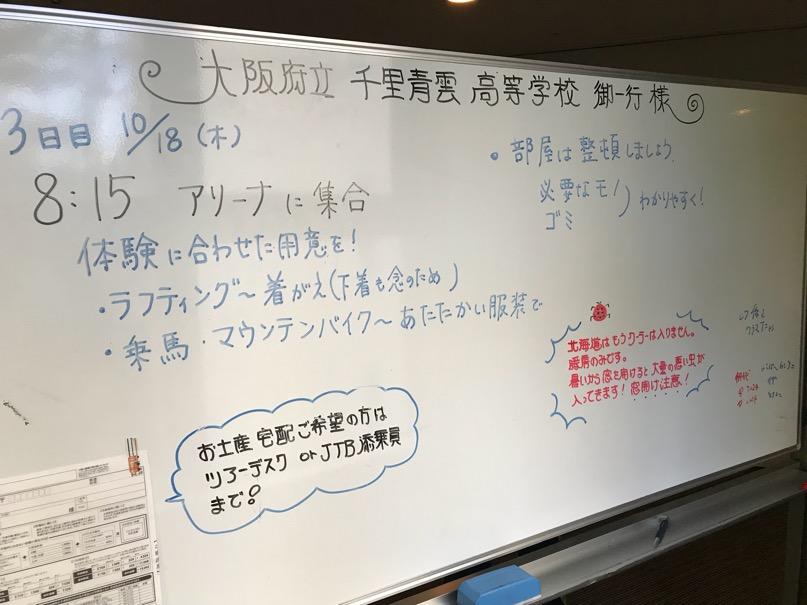 大阪府立 千里青雲 高等学校 御一行 様
3日目 10/18 (木)
8:15 アリーナに集合
体験に合わせた用意を!
・ラフティング〜着がえ(下着も念のため)
・乗馬・マウンテンバイク〜あたたかい服装で
・部屋は整頓しましょう
必要なモノ
ゴミ
わかりやすく!
北海道はもうクーラーは入りません。
暖房のみです。
暑いから窓を開けると大量の悪い虫が
入ってきます!窓開け注意!
お土産宅配ご希望の方は
ツアーデスク or JTB添乗員
まで!